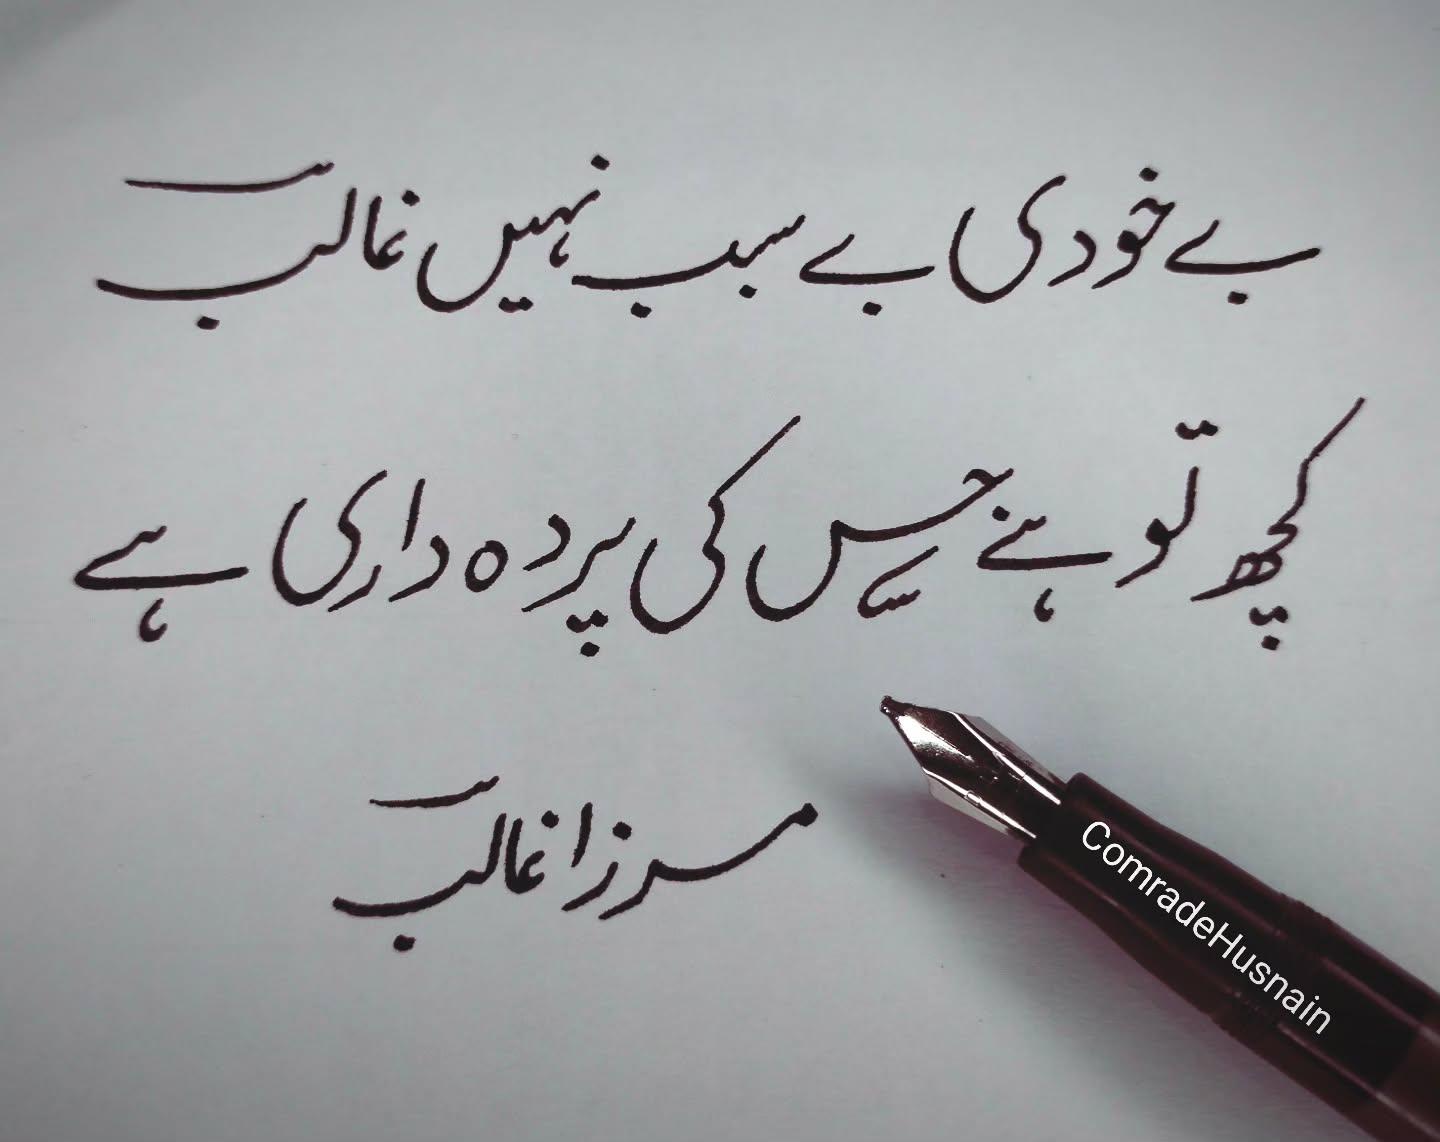 بے خودی بے سبب نہیں غالبؔ
کچھ تو ہے جس کی پردہ داری ہے
مرزا غالبؔ
ComradeHusnain